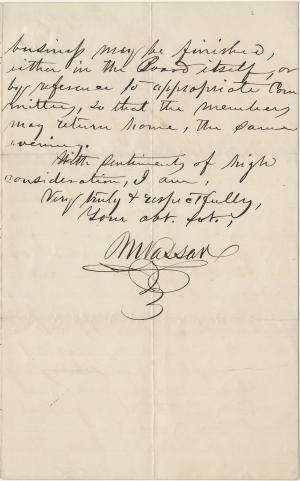 business may be finished,
either in the Board itself, or
by reference to appropriate Com
mittees, so that the members
may return home, the same
evening.
With sentiments of high
consideration, I am,
Very truly & respectfully,
Your obt. svt.,
M Vassar